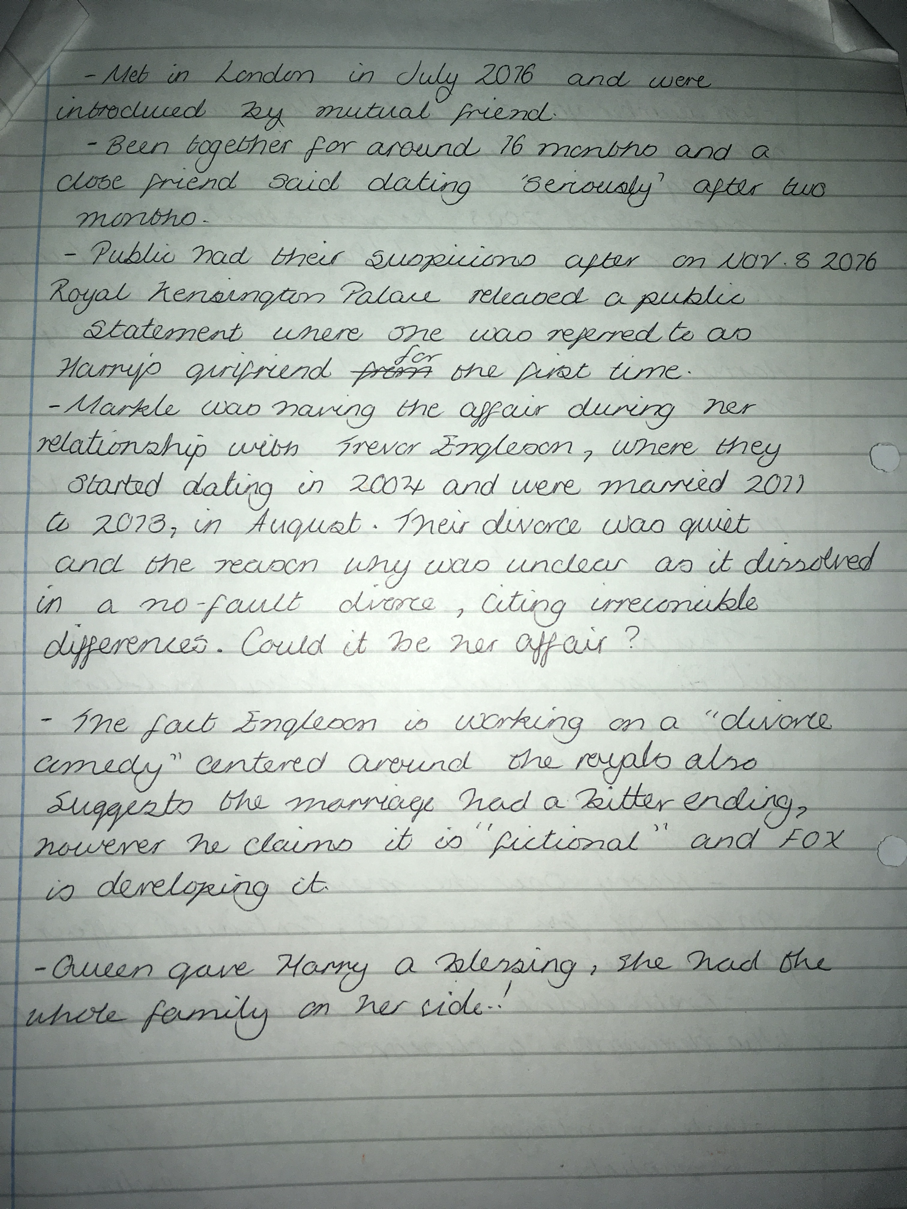 - Met in London in July 2016 and were
introduced by mutual friend.
- Been together for around 16 months and a
close friend said dating 'seriously' after two
months.
- Public had their suspicions after on Nov. 8 2016
Royal Kensington Palace released a public
statement where she was referred to as
Harry's girlfriend from for the first time.
- Markle was having the affair during her
relationship with Trevor Engleson, where they
started dating in 2004 and were married 2011
to 2013, in August. Their divorce was quiet
and the reason why was unclear as it dissolved
in a no-fault divorce, citing irreconcible
differences. Could it be her affair?
- The fact Engleson is working on a "divorce
comedy" centered around the royals also
suggests the marriage had a bitter ending,
however he claims it is "fictional" and FOX
is developing it.
- Queen gave Harry a blessing, she had the
whole family on her side..!